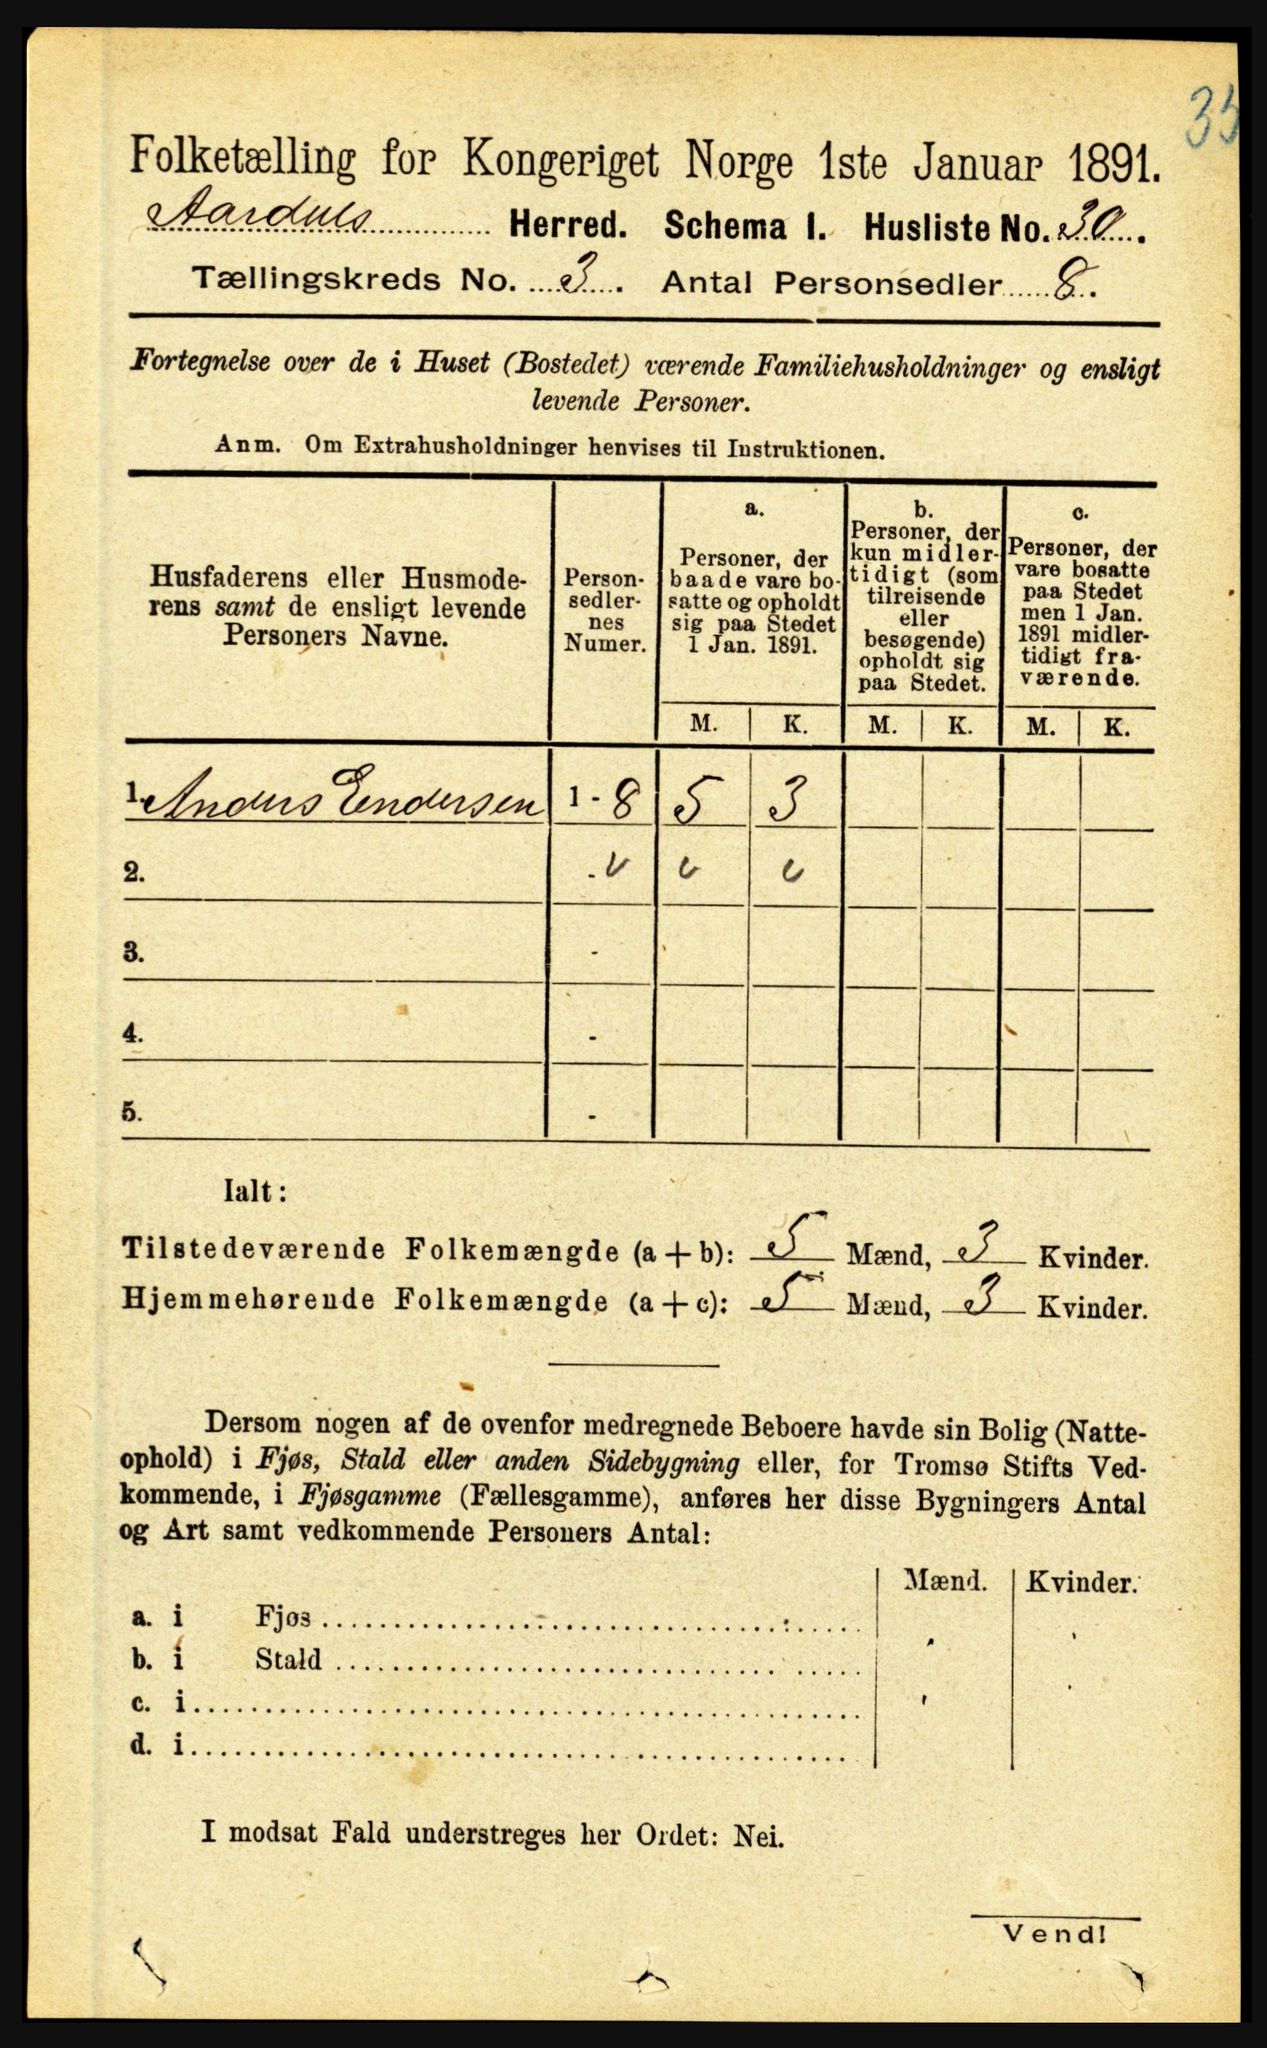 35
Folketælling for Kongeriget Norge 1ste Januar 1891.
Aardals Herred. Schema I. Husliste No. 30.
Tællingskreds No. 3. Antal Personsedler 8.
Fortegnelse over de i Huset (Bostedet) værende Familiehusholdninger og ensligt
levende Personer.
Anm. Om Extrahusholdninger henvises til Instruktionen.
Husfaderens eller Husmode-
rens samt de ensligt levende
Personers Navne.
Person-
sedler-
nes
Numer.
a.
Personer, der
baade vare bo-
satte og opholdt
sig paa Stedet
1 Jan. 1891.
b.
Personer, der
kun midler-
tidigt (som
tilreisende
eller
besøgende)
opholdt sig
paa Stedet.
c.
Personer, der
vare bosatte
paa Stedet
men 1 Jan.
1891 midler-
tidigt fra-
værende.
M. K. M. K. M. K.
1. Anders Endersen 1 - 8 5 3
2. -
3. -
4. -
5. -
Ialt:
Tilstedeværende Folkemængde (a + b): 5 Mænd, 3 Kvinder.
Hjemmehørende Folkemængde (a + c): 5 Mænd, 3 Kvinder.
Dersom nogen af de ovenfor medregnede Beboere havde sin Bolig (Natte-
ophold) i Fjøs, Stald eller anden Sidebygning eller, for Tromsø Stifts Ved-
kommende, i Fjøsgamme (Fællesgamme), anføres her disse Bygningers Antal
og Art samt vedkommende Personers Antal:
Mænd. Kvinder.
a. i Fjøs
b. i Stald
c. i
d. i
I modsat Fald understreges her Ordet: Nei.
Vend!